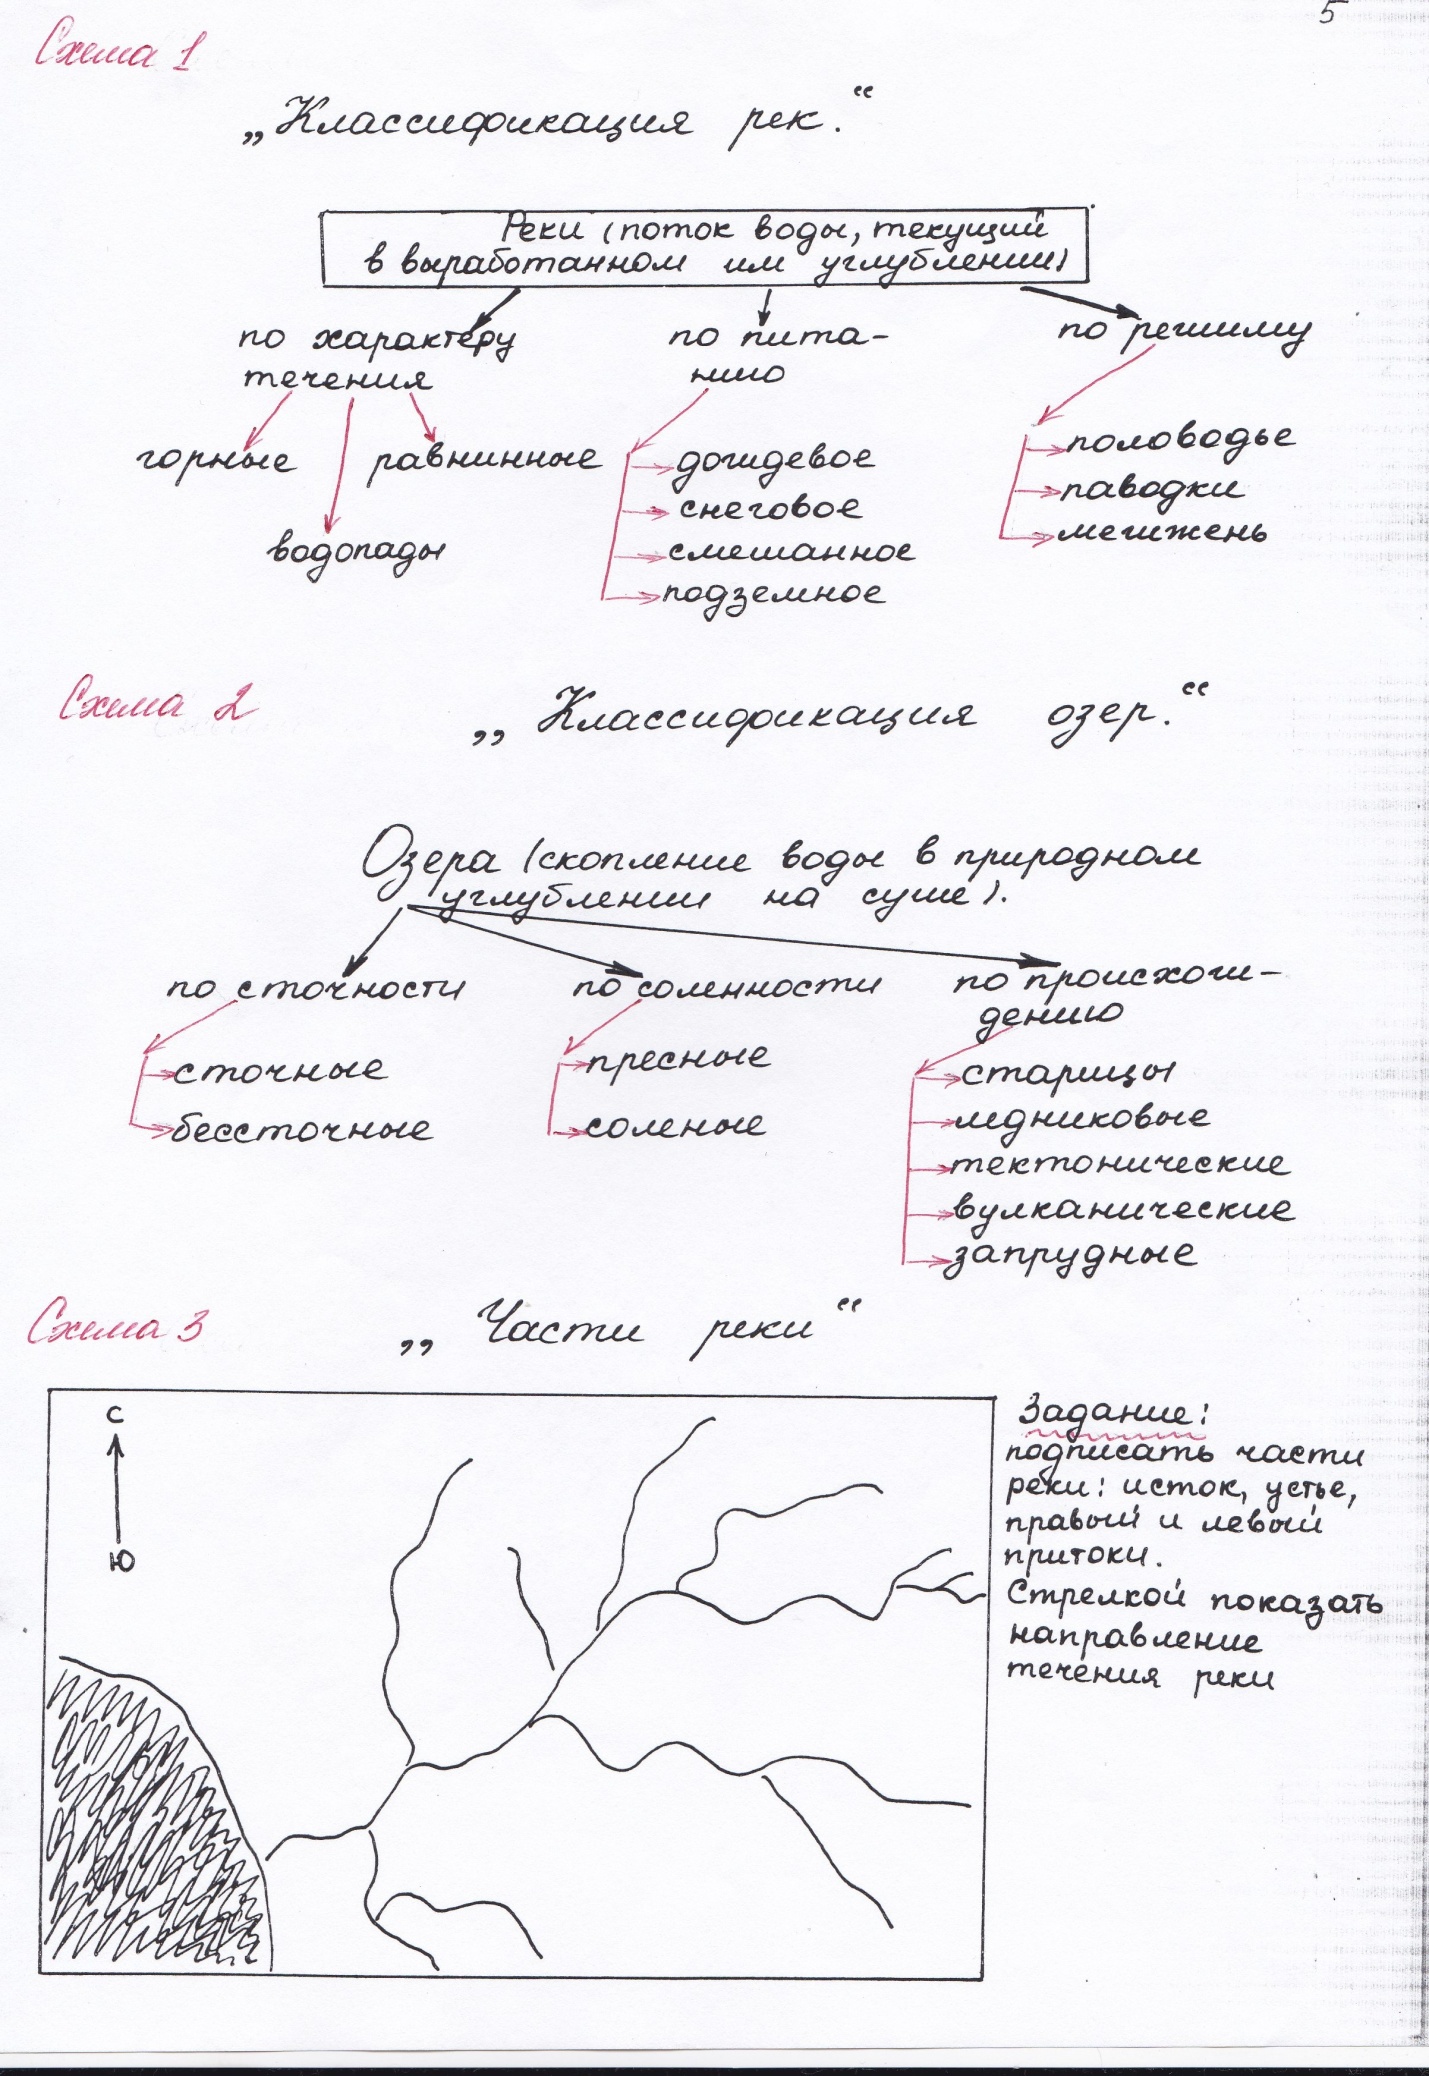 5
Схема 1
„Классификация рек.“
Реки (поток воды, текущий
в выработанном им углублении)
по характеру
течения
по пита-
нию
по режиму
горные
равнинные
водопады
дождевое
снеговое
смешанное
подземное
половодье
паводки
межжень
Схема 2
„Классификация озер.“
Озера (скопление воды в природном
углублении на суше).
по сточности
по солености
по происхож-
дению
сточные
бессточные
пресные
соленые
старицы
ледниковые
тектонические
вулканические
запрудные
Схема 3
„Части реки“
С
Ю
Задание:
подписать части
реки: исток, устье,
правый и левый
притоки.
Стрелкой показать
направление
течения реки